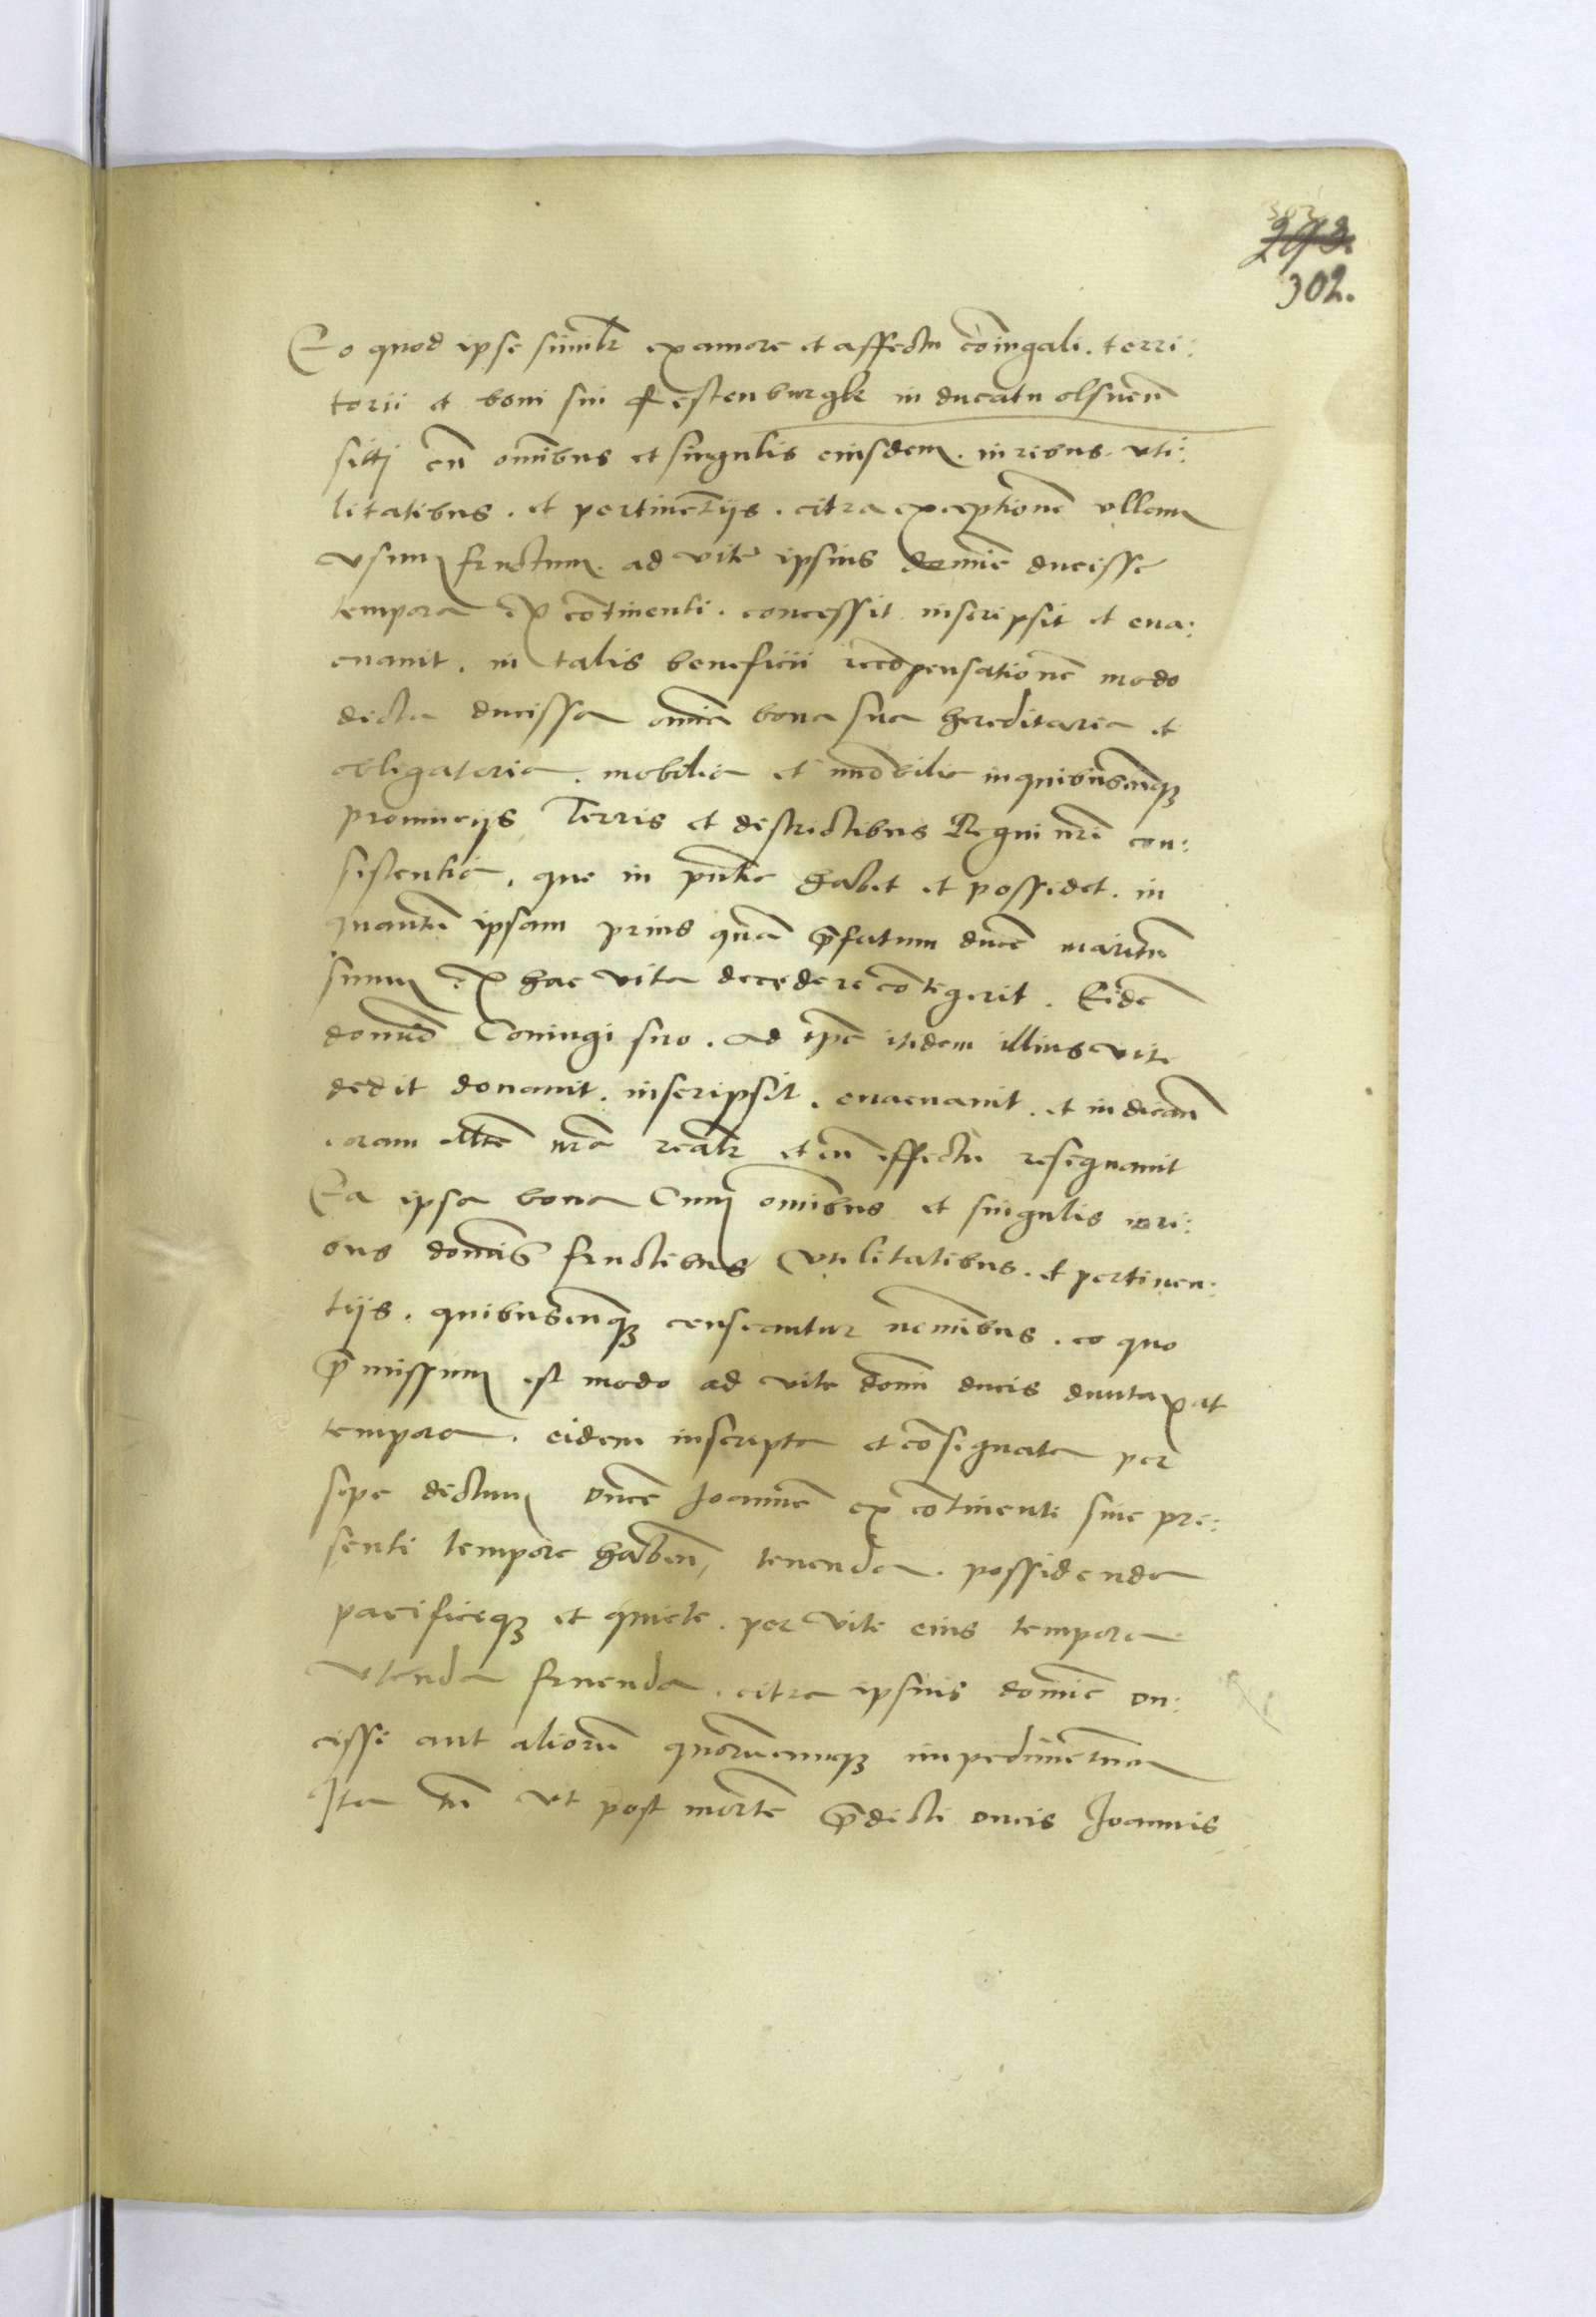 293.
302.
Eo quod ipse similr ex amore et affectu cõiugali. terri:
torii et boni sui Festenburgk in ducatu olsneñ
siti cũ omĩbus et singulis eiusdem. iuribus. uti:
litatibus. et pertinẽtijs. citra exceptionẽ ullam
usum fructum. ad vite ipsius domiẽ ducisse
tempora ex cõtinenti. concessit inscripsit et eva:
cuavit. in talis beneficii recõpensationẽ modo
dicta ducissa omĩa bona sua hereditaria et
obligatoria. mobilia et imobilia in quibuscũq3
provincijs Terris et districtibus Regni nrĩ con:
sistentia, que in pñtia habet et possidet. in
quantũ ipsam prius quã p̃fatum ducẽ maritũ
suum ex hac vita decedere cõtigerit. Eidẽ
domĩo Coniugi suo. ad tp̃a itidem illius vite
dedit donavit. inscripsit. evacuavit. et in dicanũ
coram Mte nr̃a realr et cũ effectu resignavit
Ea ipsa bona Cum omĩbus et singulis iuri:
bus domiĩs fructibus Utilitatibus. et pertinen:
tijs. quibuscũq3 censeantur nomĩbus. eo quo
p̃missum est modo ad vite domĩ ducis duntaxat
tempora. eidem inscripta et cõsignata per
sepe dictum Ducẽ Joannẽ ex cõtinenti sive pre:
senti tempore habeñ, tenenda. possidenda
pacificeq3 et quiete. per vite eius tempora
Utenda fruenda. citra ipsius domiẽ Du:
cisse aut aliorũ quorũcumq3 impedimẽtum
Ita tñ ut post mortẽ p̃dicti Ducis Joannis